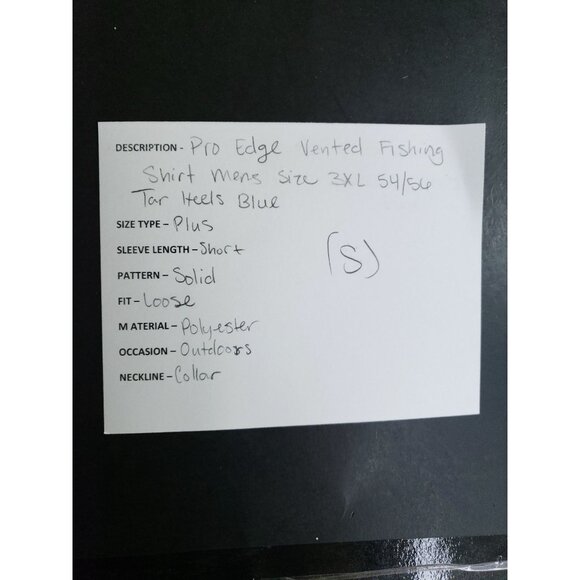 DESCRIPTION - Pro Edge Vented Fishing
Shirt Mens Size 3XL 54/56
Tar Heels Blue
SIZE TYPE - Plus
SLEEVE LENGTH - Short
(S)
PATTERN - Solid
FIT - Loose
MATERIAL - Polyester
OCCASION - Outdoors
NECKLINE - Collar